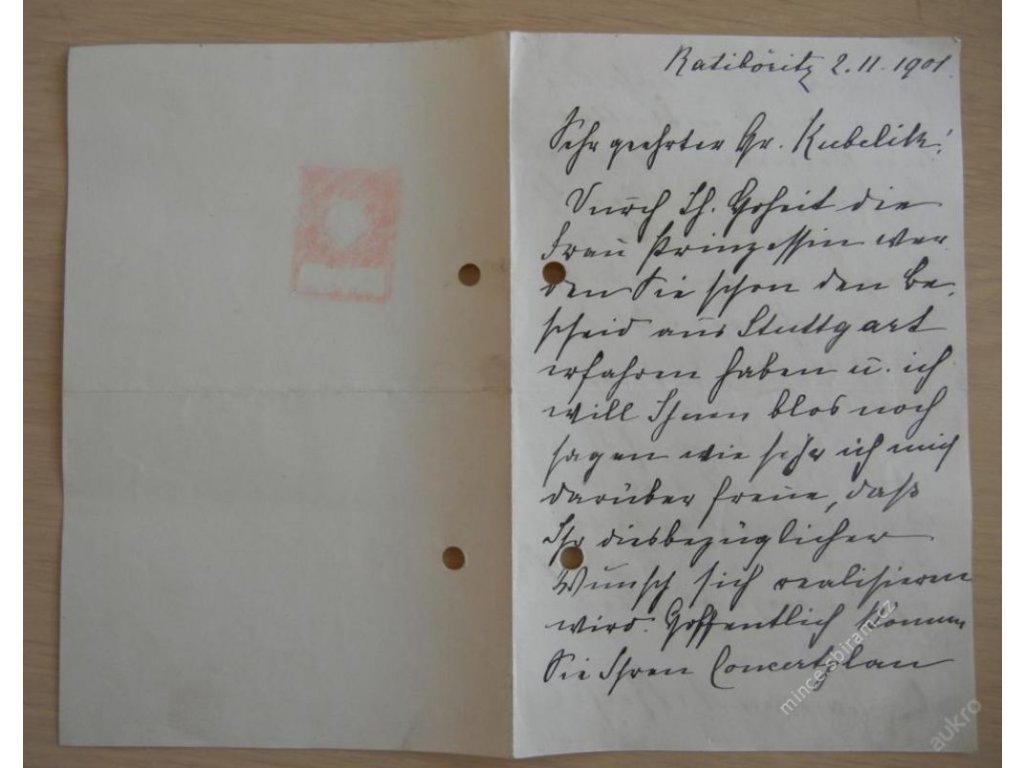 Ratibořitz 2.11.1901.
Sehr geehrter Hr. Kubelik!
Durch Ih. Hoheit die
Frau Prinzessin wer
den Sie schon den Be-
scheid aus Stuttgart
erfahren haben u. ich
will Ihnen blos noch
sagen wie sehr ich mich
darüber freue, daß
Ihr diesbezüglicher
Wunsch sich realisieren
wird. Hoffentlich können
Sie Ihren Concertplan
mince-spiram.cz
aukro